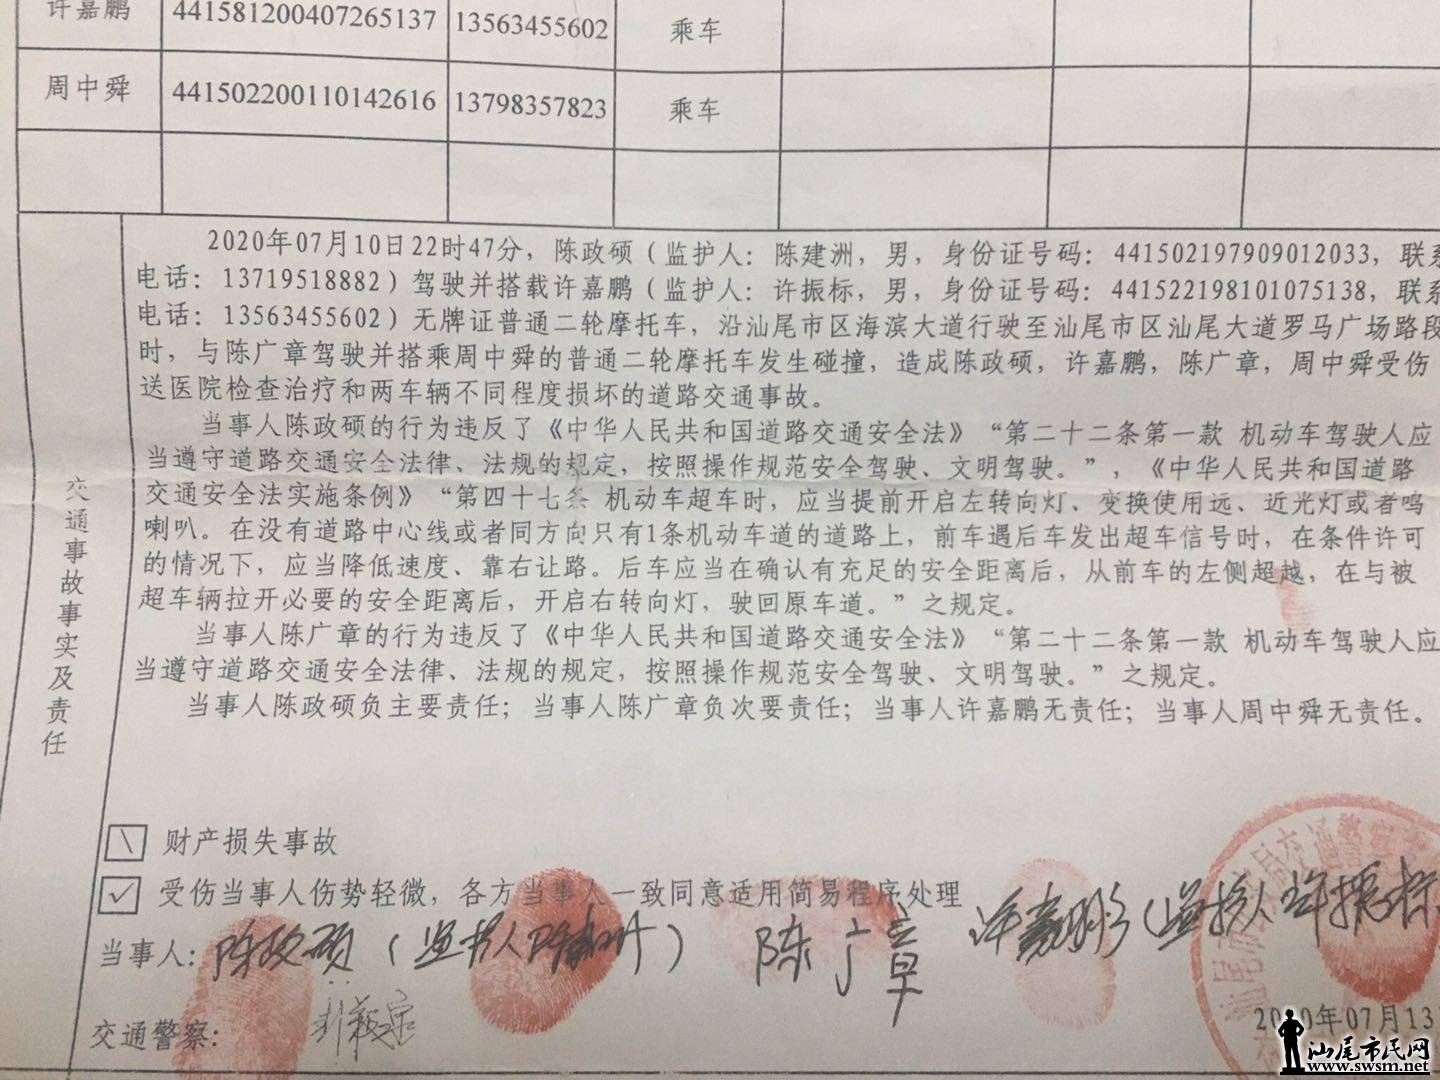 许嘉鹏 441581200407265137 13563455602 乘车
周中舜 441502200110142616 13798357823 乘车
交通事故事实及责任
2020年07月10日22时47分，陈政硕（监护人：陈建洲，男，身份证号码：441502197909012033，联系
电话：13719518882）驾驶并搭载许嘉鹏（监护人：许振标，男，身份证号码：441522198101075138，联系
电话：13563455602）无牌证普通二轮摩托车，沿汕尾市区海滨大道行驶至汕尾市区汕尾大道罗马广场路段
时，与陈广章驾驶并搭乘周中舜的普通二轮摩托车发生碰撞，造成陈政硕，许嘉鹏，陈广章，周中舜受伤
送医院检查治疗和两车辆不同程度损坏的道路交通事故。
当事人陈政硕的行为违反了《中华人民共和国道路交通安全法》“第二十二条第一款 机动车驾驶人应
当遵守道路交通安全法律、法规的规定，按照操作规范安全驾驶、文明驾驶。”，《中华人民共和国道路
交通安全法实施条例》“第四十七条 机动车超车时，应当提前开启左转向灯、变换使用远、近光灯或者鸣
喇叭。在没有道路中心线或者同方向只有1条机动车道的道路上，前车遇后车发出超车信号时，在条件许可
的情况下，应当降低速度、靠右让路。后车应当在确认有充足的安全距离后，从前车的左侧超越，在与被
超车辆拉开必要的安全距离后，开启右转向灯，驶回原车道。”之规定。
当事人陈广章的行为违反了《中华人民共和国道路交通安全法》“第二十二条第一款 机动车驾驶人应
当遵守道路交通安全法律、法规的规定，按照操作规范安全驾驶、文明驾驶。”之规定。
当事人陈政硕负主要责任；当事人陈广章负次要责任；当事人许嘉鹏无责任；当事人周中舜无责任。
财产损失事故
受伤当事人伤势轻微，各方当事人一致同意适用简易程序处理
当事人：陈政硕（监护人陈建洲） 陈广章 许嘉鹏（监护人许振标
交通警察：
2020年07月13
汕尾市民网
www.swsm.net